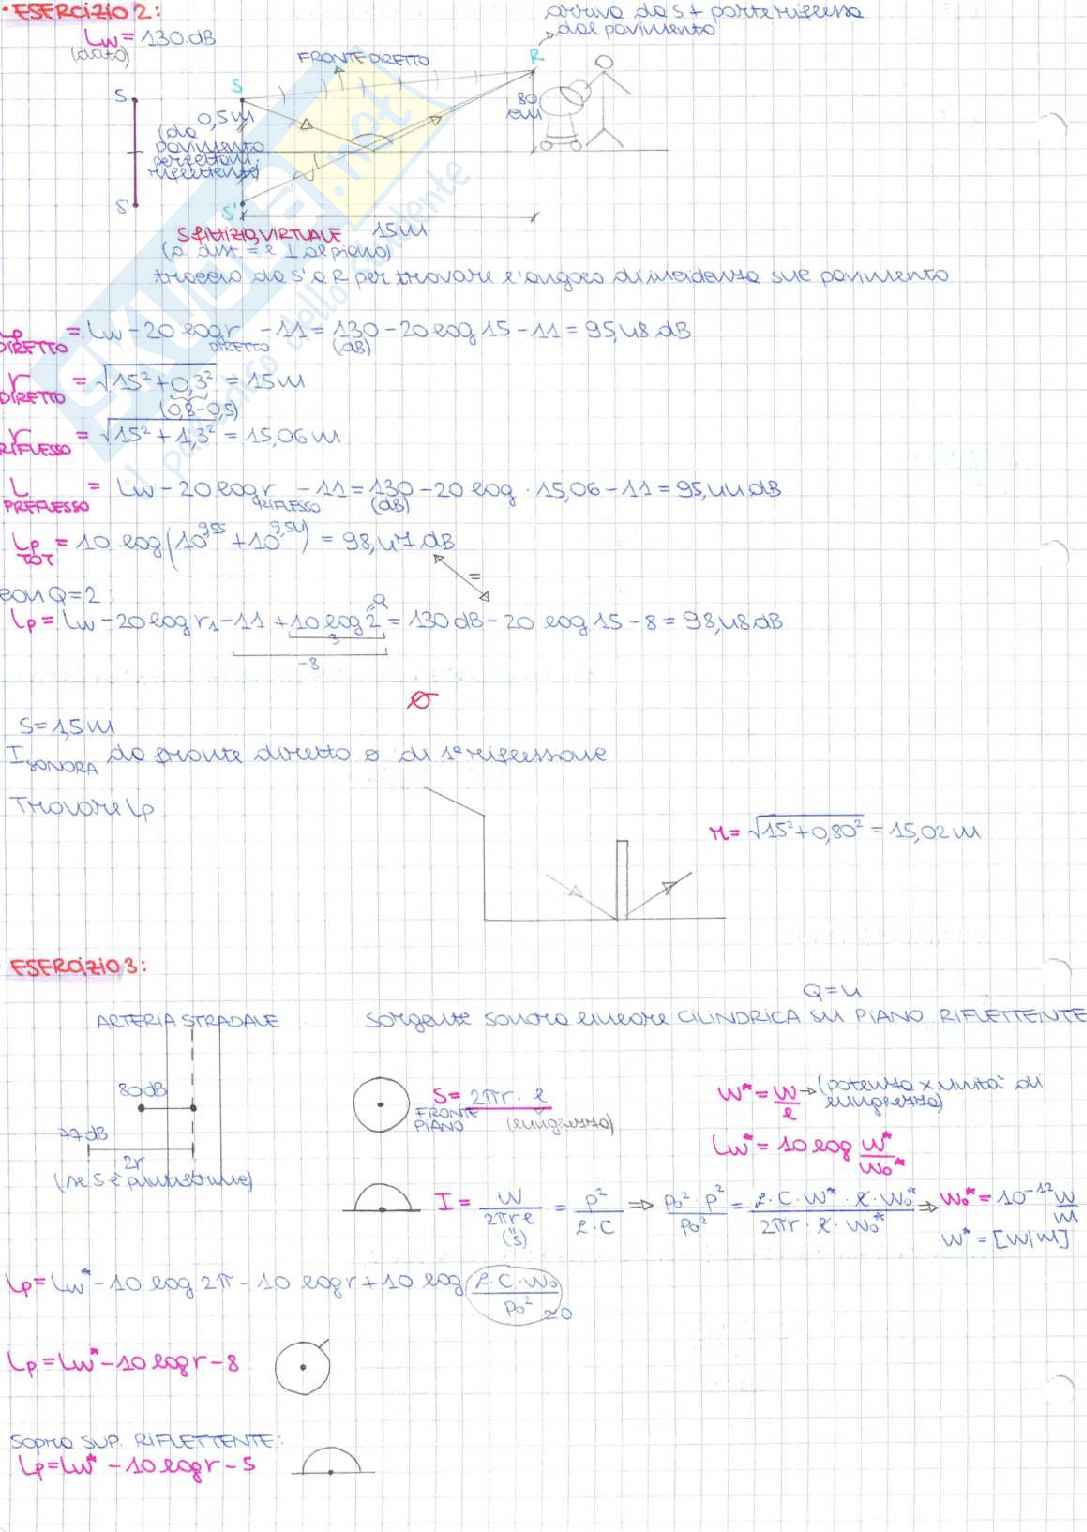 • ESERCIZIO 2:
Lw = 130 dB
(dato)
arriva da S + parte riflessa
dal pavimento
FRONTE DIRETTO
S
R
S
0,5 m
(da
pavimento
perfettam.
riflettente)
80
cm
S'
S'
15 m
S FITTIZIO, VIRTUALE
(a dist = e ⊥ al piano)
traccio da S' a R per trovare l'angolo di incidenza sul pavimento
Lp DIRETTO = Lw - 20 log r DIRETTO - 11 = 130 (dB) - 20 log 15 - 11 = 95,48 dB
r DIRETTO = √15² + 0,3² = 15 m
(0,8 - 0,5)
r RIFLESSO = √15² + 1,3² = 15,06 m
L PRIFLESSO = Lw - 20 log r RIFLESSO - 11 = 130 (dB) - 20 log · 15,06 - 11 = 95,44 dB
Lp TOT = 10 log (10^9,55 + 10^9,54) = 98,47 dB
=
con Q = 2:
Q
Lp = Lw - 20 log r₁ - 11 + 10 log 2 = 130 dB - 20 log 15 - 8 = 98,48 dB
3
-8
S = 1,5 m
I SONORA da fronte diretto e di 1ª riflessione
Trovare Lp
r = √15² + 0,80² = 15,02 m
ESERCIZIO 3:
Q = 4
ARTERIA STRADALE
Sorgente sonora lineare CILINDRICA SU PIANO RIFLETTENTE
80 dB
77 dB
2r
(se S è puntiforme)
S = 2πr · l
FRONTE PIANO (lunghezza)
W* = W/l → (potenza x unità di lunghezza)
Lw* = 10 log W*/W₀*
I = W/2πrl = p²/ρ·C ⇒ p₀²·p²/p₀² = ρ·C·W*·l·W₀*/2πr·l·W₀* → W₀* = 10⁻¹² W/m
(S)
W* = [W/m]
Lp = Lw* - 10 log 2π - 10 log r + 10 log ρ·C·W₀/p₀² ≃ 0
Lp = Lw* - 10 log r - 8
Sopra SUP. RIFLETTENTE:
Lp = Lw* - 10 log r - 5